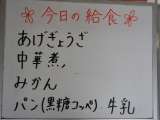 今日の給食
あげぎょうざ
中華煮
みかん
パン(黒糖コッペ) 牛乳